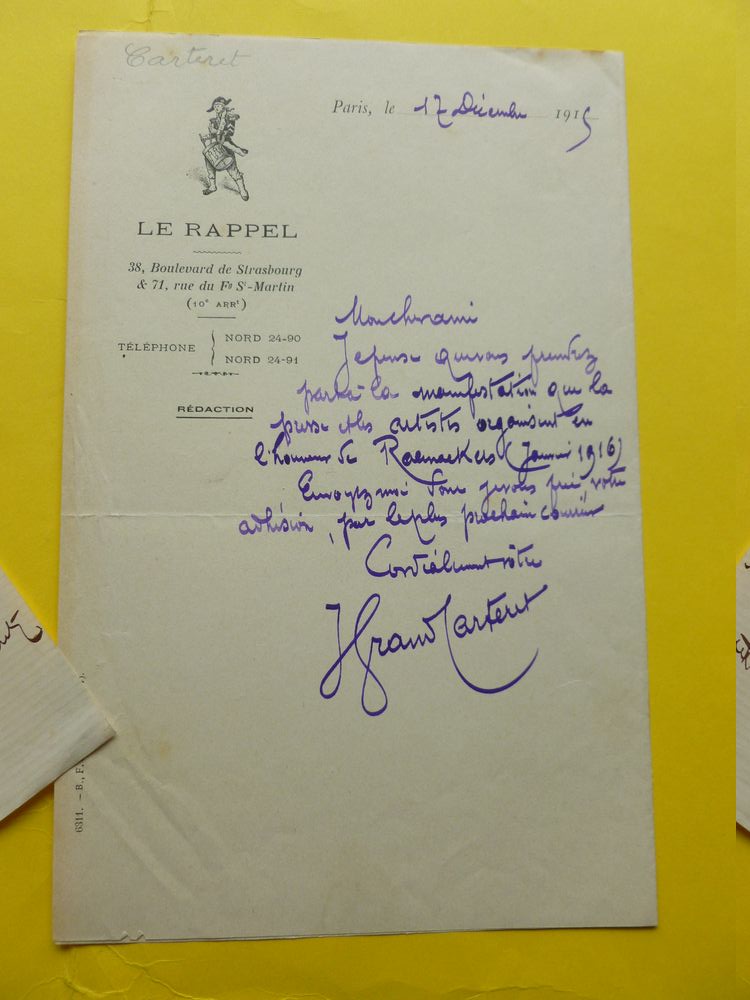 Carteret
Paris, le 17 Décembre 1915
LE RAPPEL
38, Boulevard de Strasbourg
& 71, rue du Fg St-Martin
(10e ARRt)
TÉLÉPHONE
NORD 24-90
NORD 24-91
RÉDACTION
Mon cher ami
Je pense que vous prendrez
part à la manifestation que la
presse et les artistes organisent en
l'honneur de Raemaekers (Janvier 1916)
Envoyez moi donc je vous prie votre
adhésion, par le plus prochain courrier
Cordialement vôtre
J Grand Carteret
6311. — B., F.